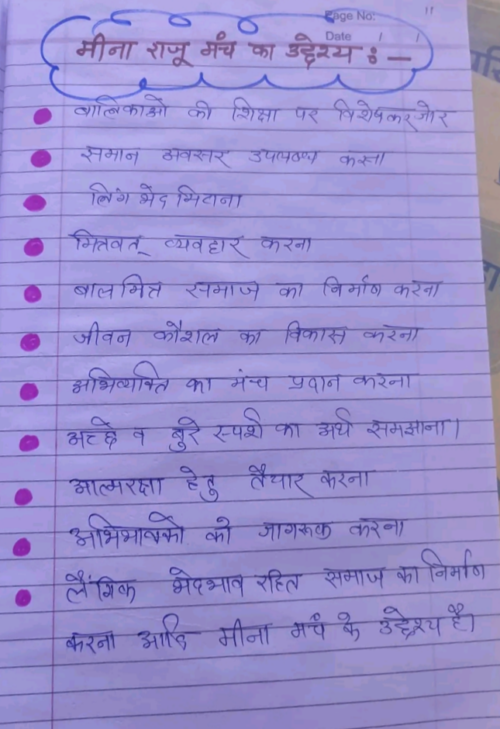 Page No:
Date
मीना राजू मंच का उद्देश्य :—
बालिकाओं की शिक्षा पर विशेषकर जोर
समान अवसर उपलब्ध करना
लिंग भेद मिटाना
मित्रवत् व्यवहार करना
बाल मित्र समाज का निर्माण करना
जीवन कौशल का विकास करना
अभिव्यक्ति का मंच प्रदान करना
अच्छे व बुरे स्पर्श का अर्थ समझाना।
आत्मरक्षा हेतु तैयार करना
अभिभावकों को जागरूक करना
लैंगिक भेदभाव रहित समाज का निर्माण
करना आदि मीना मंच के उद्देश्य है।